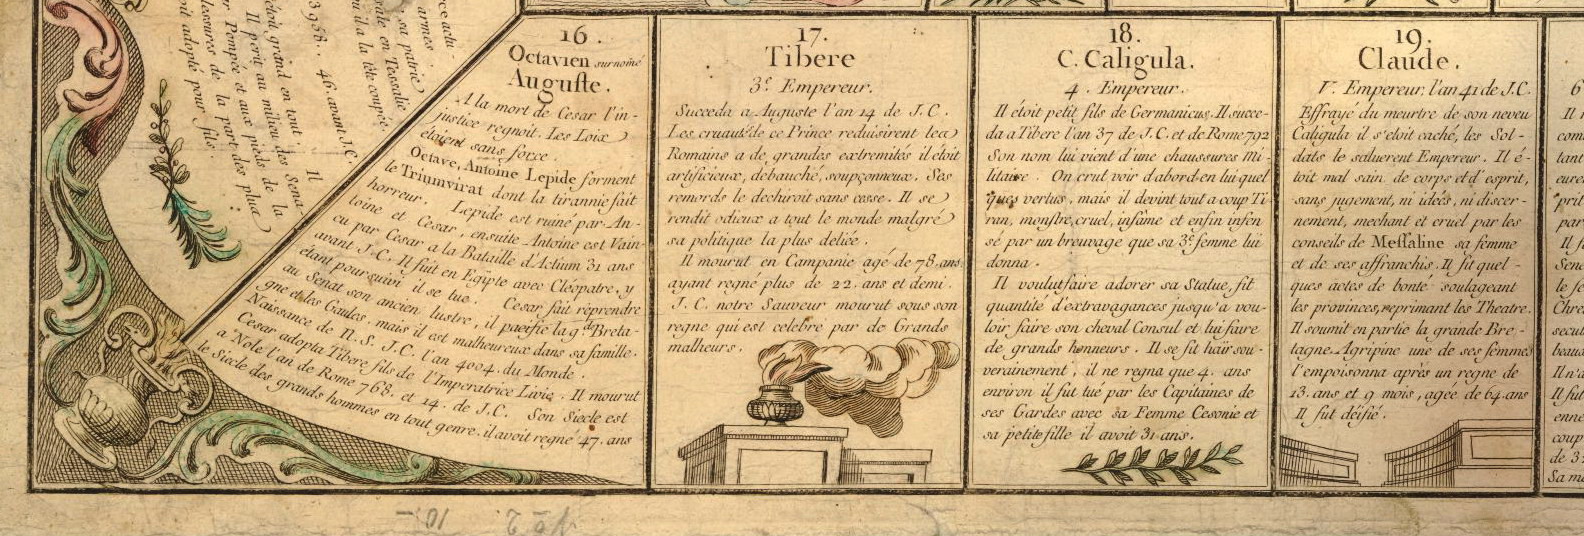 16.
Octavien surnomé
Auguste.
A la mort de Cesar l'in-
justice regnoit. Les Loix
étoient sans force.
Octave, Antoine Lepide forment
le Triumvirat dont la tirannie fait
horreur. Lepide est ruiné par An-
toine et Cesar, ensuite Antoine est Vain-
cu par Cesar a la Bataille d'Actium 31 ans
avant J.C. Il fuit en Egÿpte avec Cléopatre, y
étant poursuivi il se tue. Cesar fait réprendre
au Senat son ancien lustre, il pacifie la g.de Breta-
gne et les Gaules, mais il est malheureux dans sa famille.
Naissance de N. S. J.C. l'an 4004. du Monde.
Cesar adopta Tibere fils de l'Imperatrice Livie. Il mourut
a Nole l'an de Rome 763. et 14. de J.C. Son Siecle est
le Siecle des grands hommes en tout genre. il avoit regne 47. ans
17.
Tibere
3.e Empereur.
Succeda a Auguste l'an 14 de J. C.
Les cruautés de ce Prince reduisirent les
Romains a de grandes extremités il étoit
artificieux, debauché, soupçonneux. Ses
remords le dechiroit sans cesse. Il se
rendit odieux a tout le monde malgré
sa politique la plus deliée.
Il mourut en Campanie agé de 78. ans
ayant regné plus de 22. ans et demi.
J. C. notre Sauveur mourut sous son
regne qui est celebre par de Grands
malheurs.
18.
C. Caligula.
4. Empereur.
Il étoit petit fils de Germanicus. Il succe-
da a Tibere l'an 37 de J.C. et de Rome 792
Son nom lui vient d'une chaussures mi-
litaire. On crut voir d'abord en lui quel
ques vertus, mais il devint tout a coup Ti-
ran, monstre, cruel, infame et enfin insen
sé par un breuvage que sa 3.e femme lui
donna.
Il voulut faire adorer sa Statue, fit
quantité d'extravagances jusqu'a vou-
loir faire son cheval Consul et lui faire
de grands honneurs. Il se fit haïr sou-
verainement, il ne regna que 4. ans
environ il fut tué par les Capitaines de
ses Gardes avec sa Femme Cesonie et
sa petite fille il avoit 31. ans.
19.
Claude.
V. Empereur, l'an 41 de J.C.
Effrayé du meurtre de son neveu
Caligula il s'étoit caché, les Sol-
dats le saluerent Empereur. Il é-
toit mal sain de corps et d'esprit,
sans jugement, ni ideés, ni discer-
nement, mechant et cruel par les
conseils de Messaline sa femme
et de ses affranchis. Il fit quel-
ques actes de bonté soulageant
les provinces, reprimant les Theatre.
Il soumit en partie la grande Bre-
tagne. Agripine une de ses femmes
l'empoisonna après un regne de
13. ans et 9 mois, agée de 64. ans
Il fut déifié.